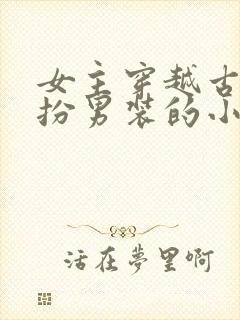 女主穿越古
扮男装的小
活在夢里啊